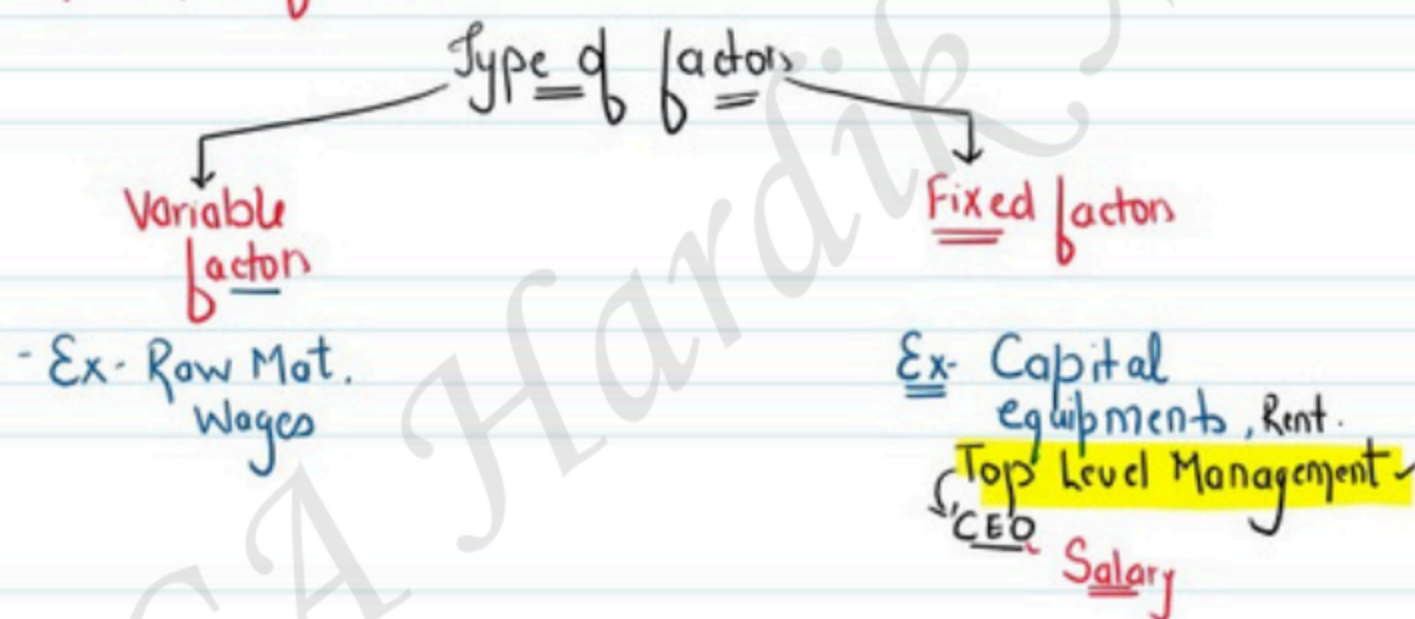 Type of factors
Variable
factors
Fixed factors
- Ex- Raw Mat.
Wages
Ex- Capital
equipments, Rent.
Top Level Management
CEO
Salary
CA Hardik